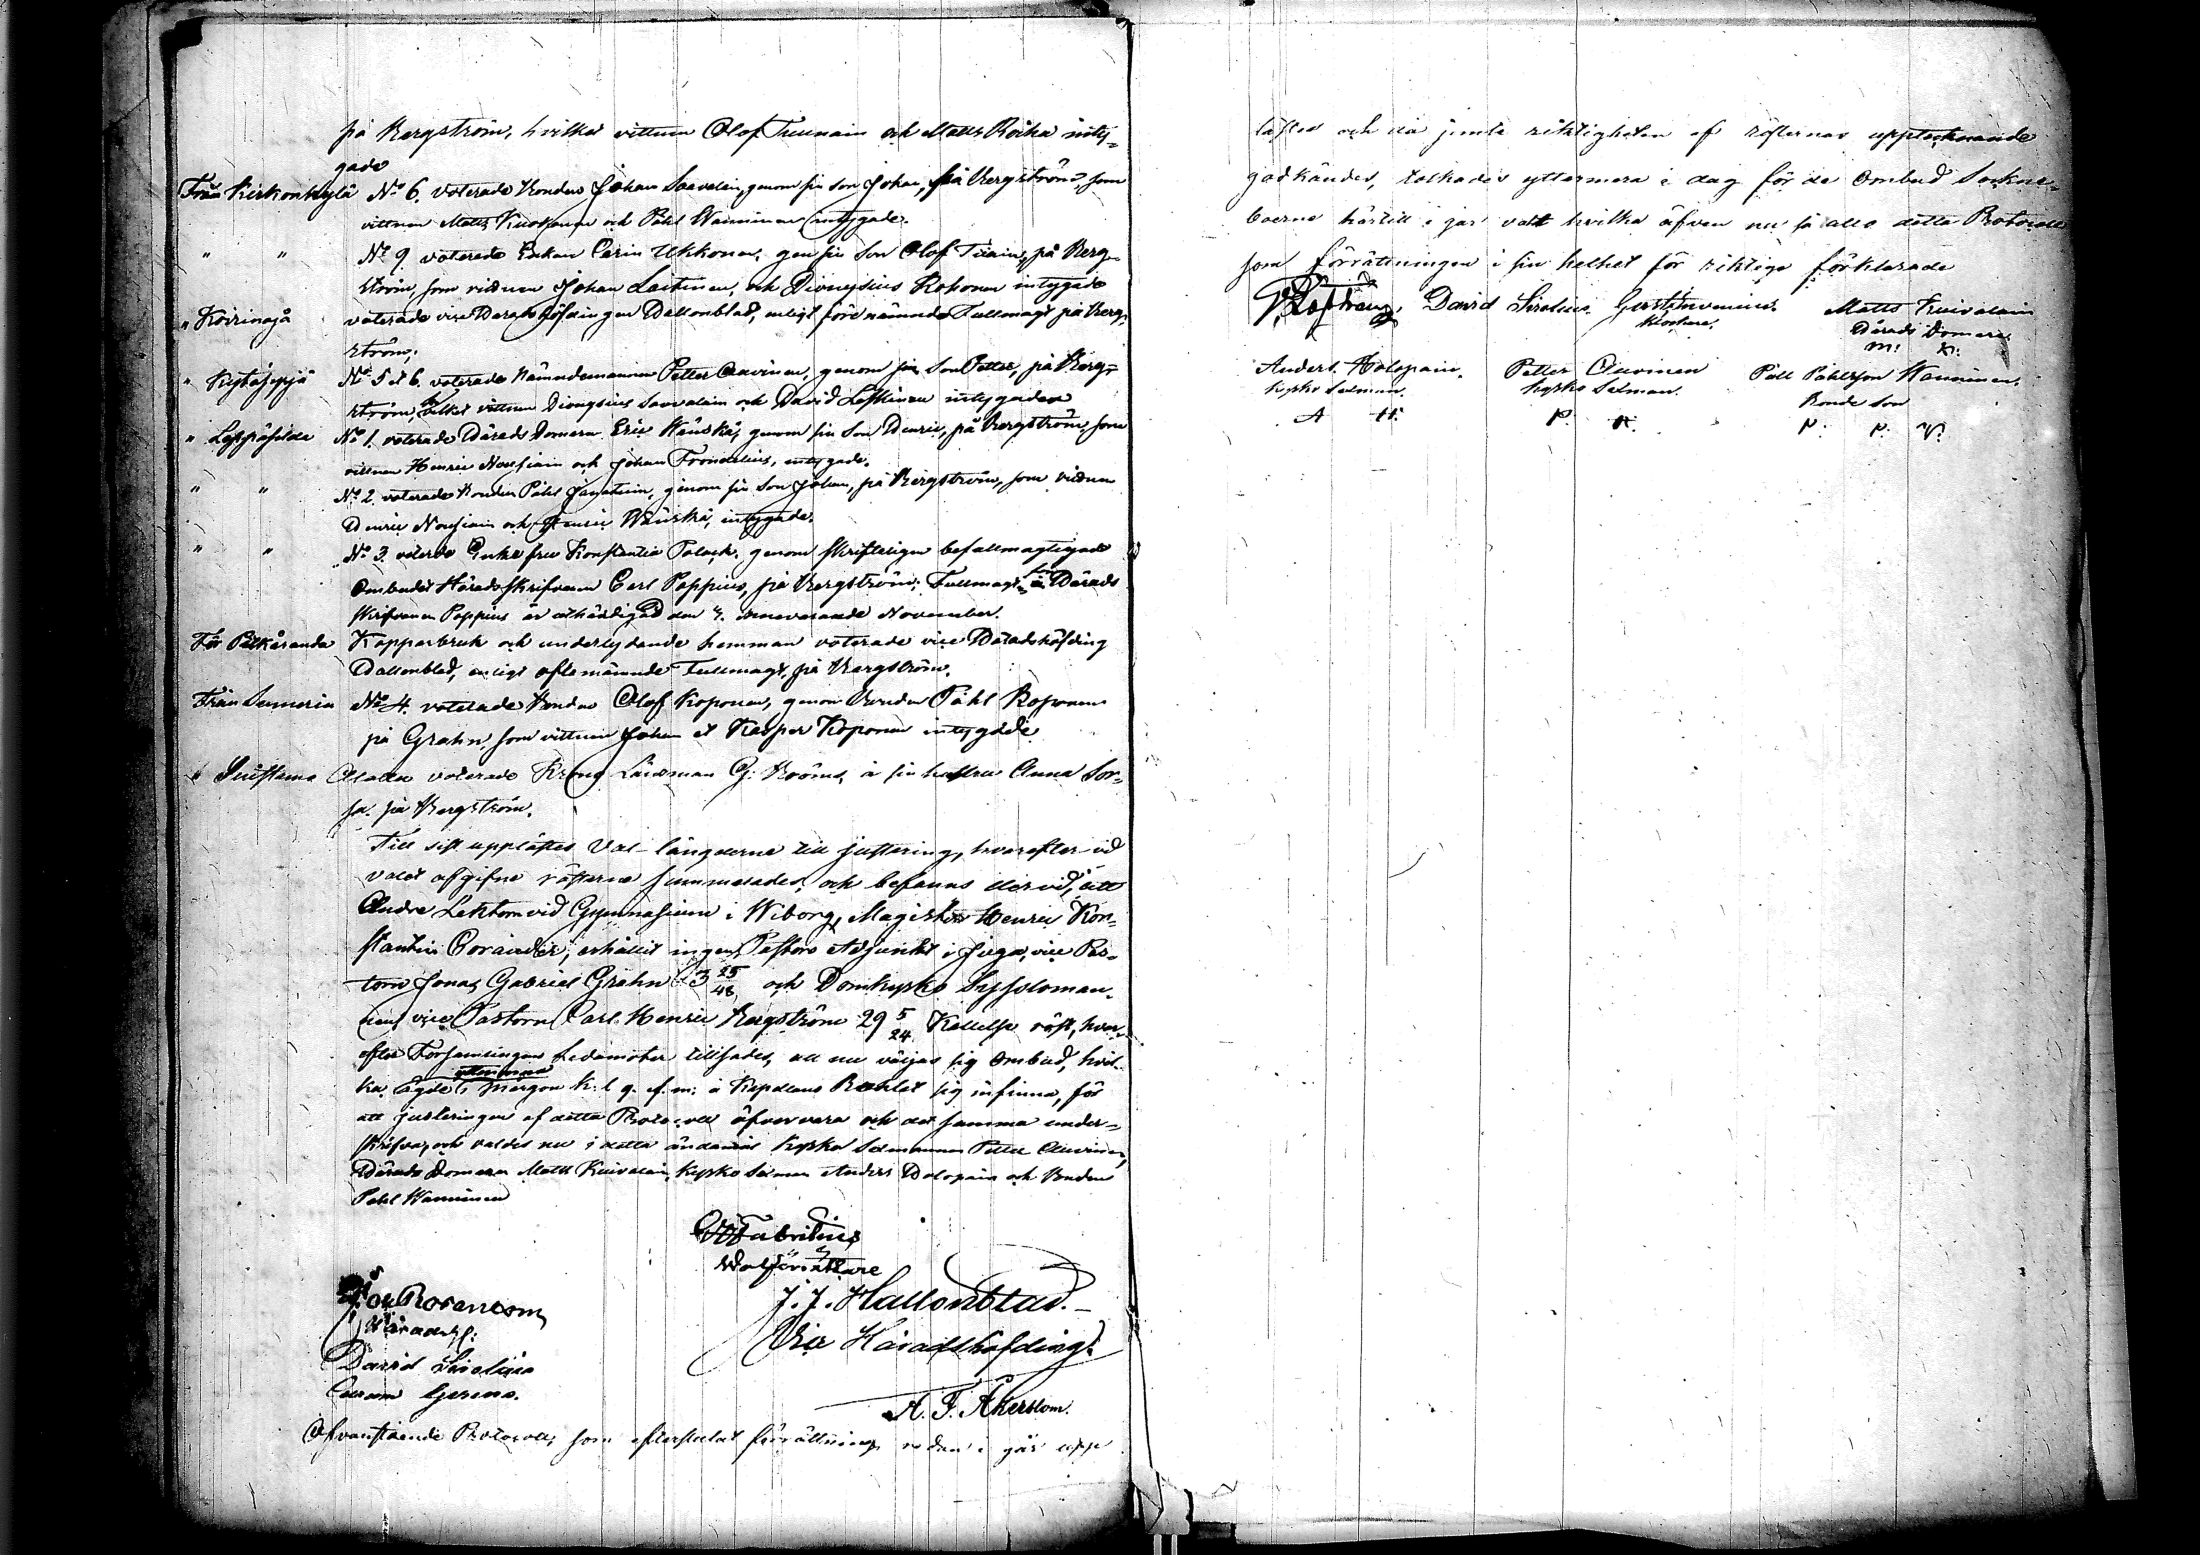 på Bergström, hvilket vittnen Olof Tiurain och Matts Roika intygade
Från Kirkonkylä No 6. voterade Bonden Johan Saavalain, genom sin son Johan, på Bergström, som
vittnen Matts Kuosmanen och Påhl Wänninen intygade.
" " No 9. voterade Enkan Carin Ukkonen, gen sin Son Olof Tiiain, på Berg-
ström, som vittnen Johan Laitinen, och Dionysius Rokonen intygade
" Koirinoja voterade vice Härads Höfdingen Hallonblad, enligt förenämnde Fullmagt på Berg-
ström;
" Kytösyrjä No 5 et 6. voterade Nämndemannen Petter Auvinen, genom sin Son Petter, på Berg-
ström, hvilket vittnen Dionysius Saavalain och David Löfström intygade
" Leppäsilda No 1. voterade Härads Domaren Eric Wänskä, genom sin Son Henric, på Bergström, som
vittnen Henric Nousiain och Johan Frondelius, intygade.
" " No 2. voterade Bonden Påhl Janatuin, genom sin Son Johan, på Bergström, som vittnen
Henric Nousiain och Henric Wänskä, intygade.
" " No 3. voterade Enke fru Konstantia Polack, genom skriftligen befullmägtigade
Ombudet Häradsskrifvaren Carl Poppius, på Bergström; Fullmagt för Härads
Skrifvaren Poppius är uthändigad den 4. innevarande November.
För Pitkäranda Kopparbruk och underlydande hemman voterade vice Häradshöfding
Hallonblad, enligt oftenämnde Fullmagt, på Bergström.
Från Summeria No 4. voterade Bonden Olof Koponen, genom Bonden Påhl Koponen
på Grahn, som vittnen Johan et Kasper Koponen intygade
" Suistamo Alattu voterade Krono Länsman G: Brööms, å sin hustru Anna Sor-
sa. på Bergström.
Till sist upplästes Val-längderne till justering, hvarefter vid
valet afgifne rösterne summerades, och befanns dervid, att
Andre Lektorn vid Gymnasium i Wiborg, Magister Henric Kon-
stantin Corander, erhållit ingen, Pastors Adjunkt i Jorga, vice Pas-
torn Jonas Gabriel Grahn 3 25/48 och Domkyrko Sysslomannen,
vice Pastorn Carl Henric Bergström 29 5/24 Kallelse röst, hvar-
efter Församlingens Ledamöter tillsades, att nu välja sig ombud, hvil-
ka ägde yttermera i morgon K: l 9. f. m: å Kapellans Bohlet sig infinna, för
att justeringen af detta Protocoll öfvervara och det samma under-
skrifva, och valdes nu i detta ändamål Kyrko Sexmannen Petter Auvinen,
Härads Domaren Matts Kuivalain, Kyrko Sexman Anders Holopain och Bonden
Påhl Wänninen
Fabritius
Valförrättare
Rosenbom
Häradsh:
J. J. Hallonblad.
Vice Häradshöfding.
David Sirelius
A. F. Åkerblom.
Ofvanstående Protocoll, som efter slutad förrättning redan i går upp
lästes och då jemte riktigheten af rösternas upptecknande
godkändes, tolkades yttermera i dag för de Ombud Sockne-
boerne härtill i går valt hvilka äfven nu så alle detta Protocoll
som förrättningen i sin helhet för riktige förklarade
David Sirelius.
Klockare.
Matts Kuivalain
Härads Domare
M: K:
Anders Holopain.
Kyrko Sexman.
A H.
Petter Auvinen
Kyrko Sexman.
P. A.
Påll Påhlsson Wänninen
Bonde Son
P: P: W: